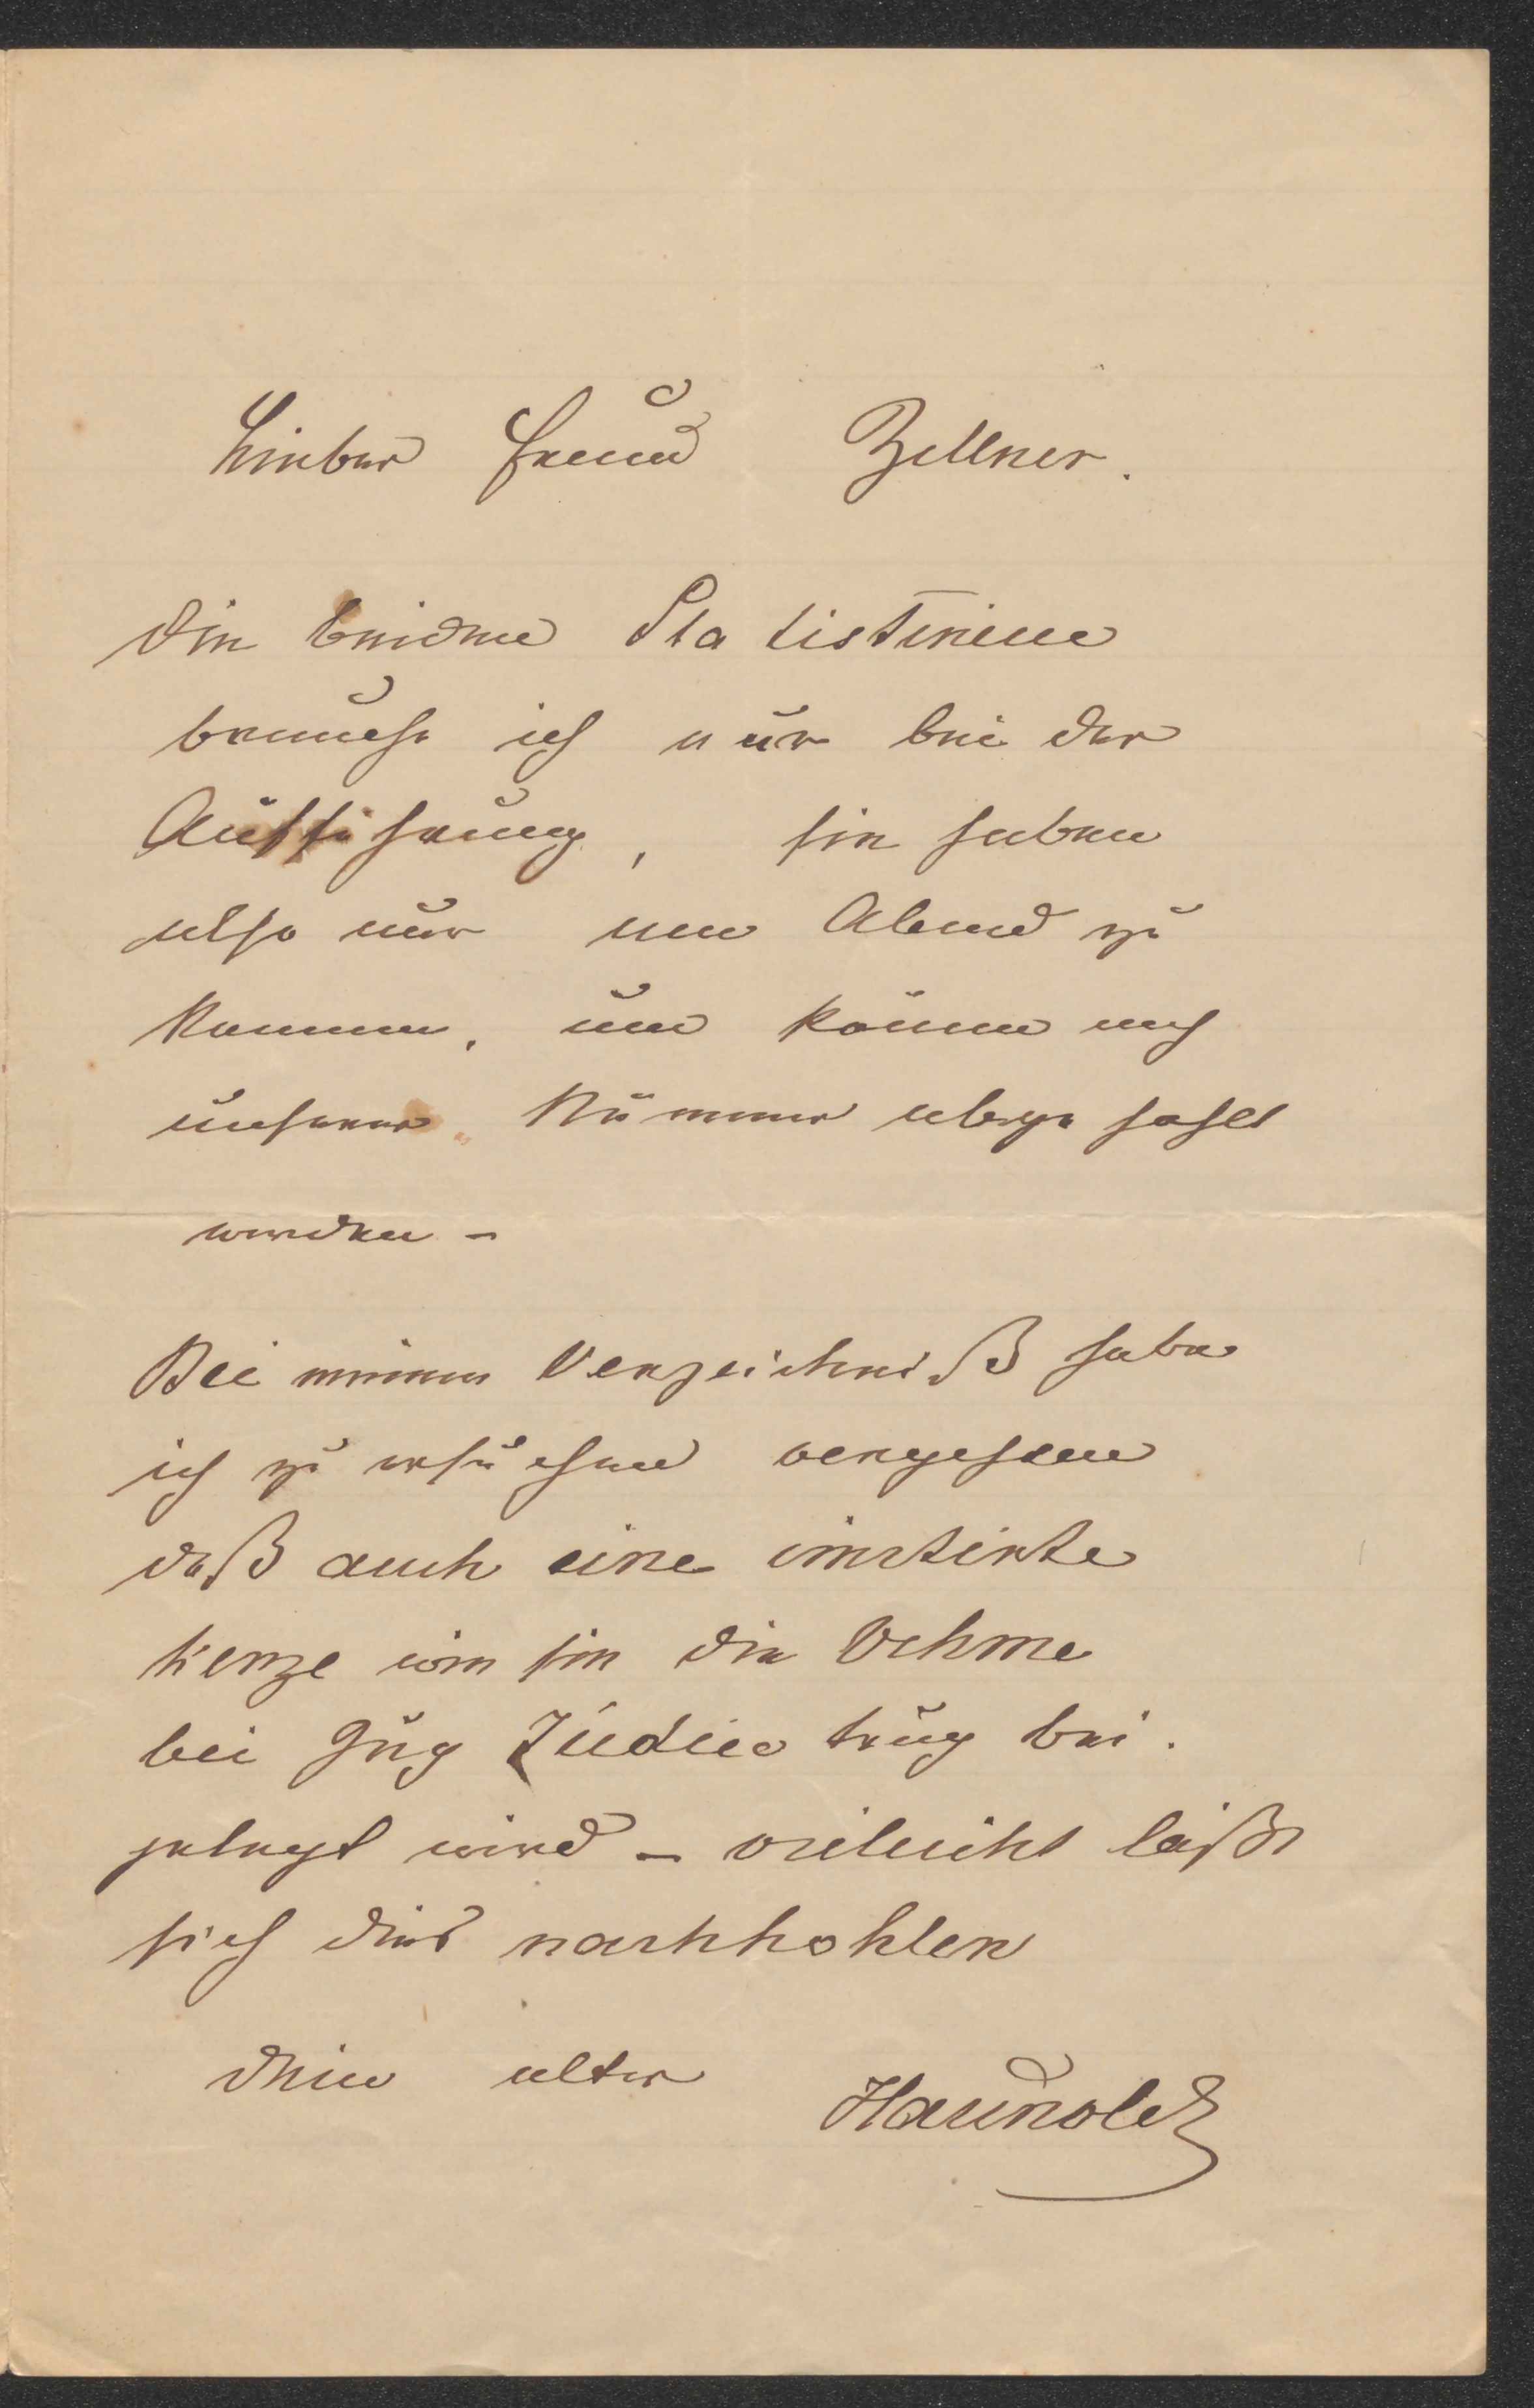 Lieber Freund Zellner.
Die beiden Statistinen
brauche ich nur bei der
Aufführung, sie haben
also nur am Abend zu
kommen, und können nach
unserer Nummer abgeholt
werden –
Bei meinem Verzeichniß habe
ich zu ersuchen vergessen
daß auch eine
Kerze wie sie die Vehme
bei Zug trug bei.
gelegt wird – vieleicht läßt
sich dies nachhohlen
dein alter Haunold